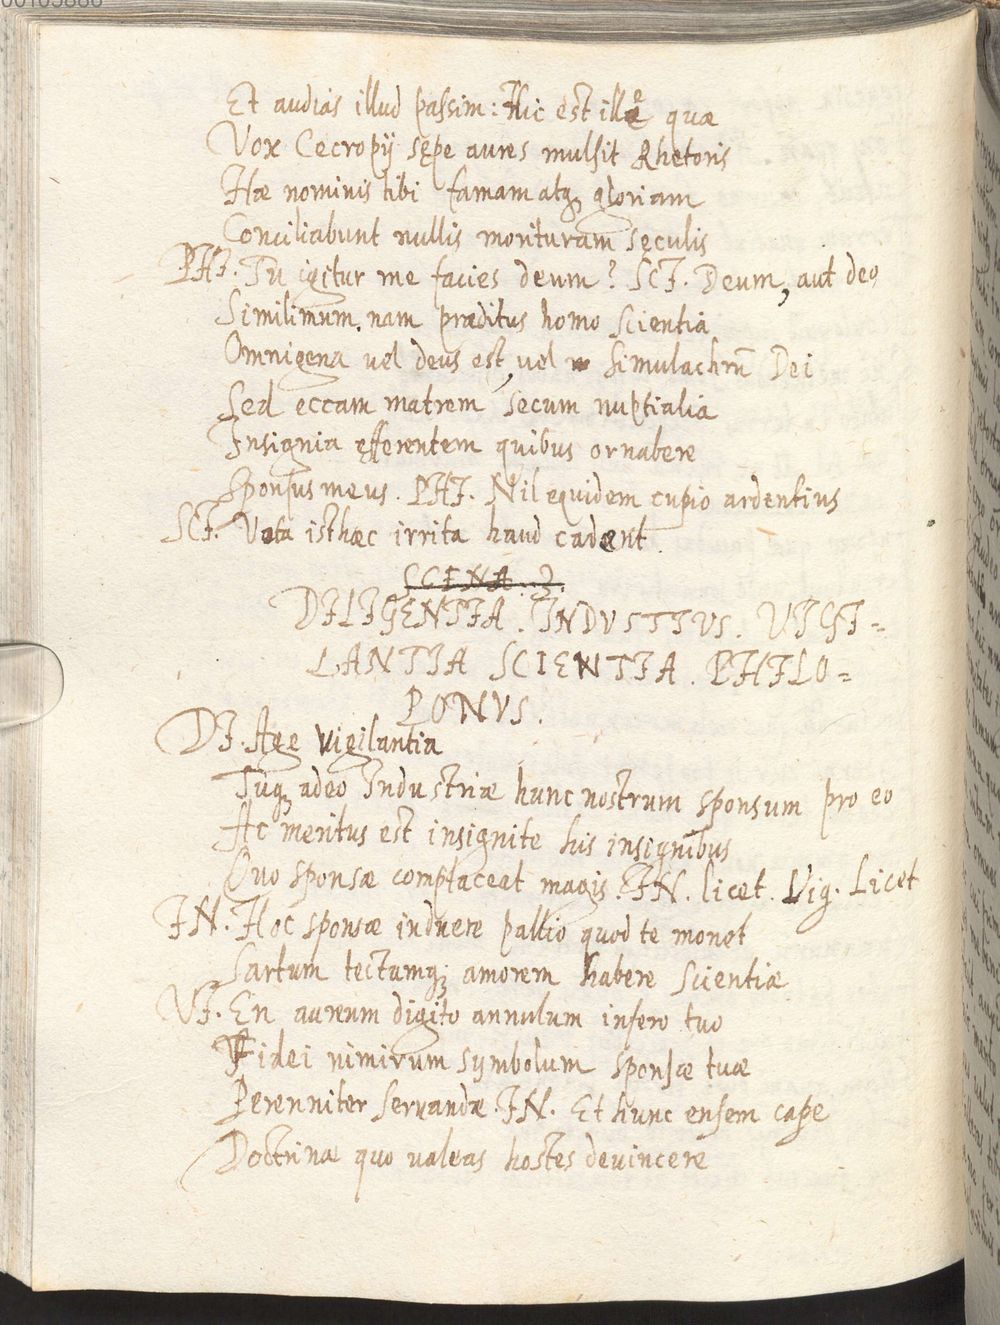 Et audias illud passim: Hic est ille quæ
Vox Cecropij sępe aures mulsit Rhetoris
Hæ nominis tibi famam atq; gloriam
Conciliabunt nullis morituram sęculis
PHI. Tu igitur me facies deum? SCI. Deum, aut deo
Similimum. nam præditus homo scientia
Omnigena vel deus est, vel simulachrũ Dei
Sed eccam matrem secum nuptialia
Insignia efferentem quibus ornabere
Sponsus meus. PHI. Nil equidem cupio ardentius
SCI. Vota isthæc irrita haud cadent.
SCENA. 3.
DILIGENTIA. INDVSTIVS. VIGI=
LANTIA SCIENTIA. PHILO=
PONVS.
DI. Age Vigilantia
Tuq; adeo Industriæ hunc nostrum sponsum pro eo
Ac meritus est insignite his insignibus
Quo sponsæ complaceat magis. IN. licet. Vig. Licet
IN. Hoc sponsæ induere pallio quod te monet
Sartum tectumq; amorem habere Scientiæ
VI. En aureum digito annulum infero tuo
Fidei nimirum symbolum sponsæ tuæ
Perenniter servandæ. IN. Et hunc ensem cape
Doctrinæ quo valeas hostes devincere